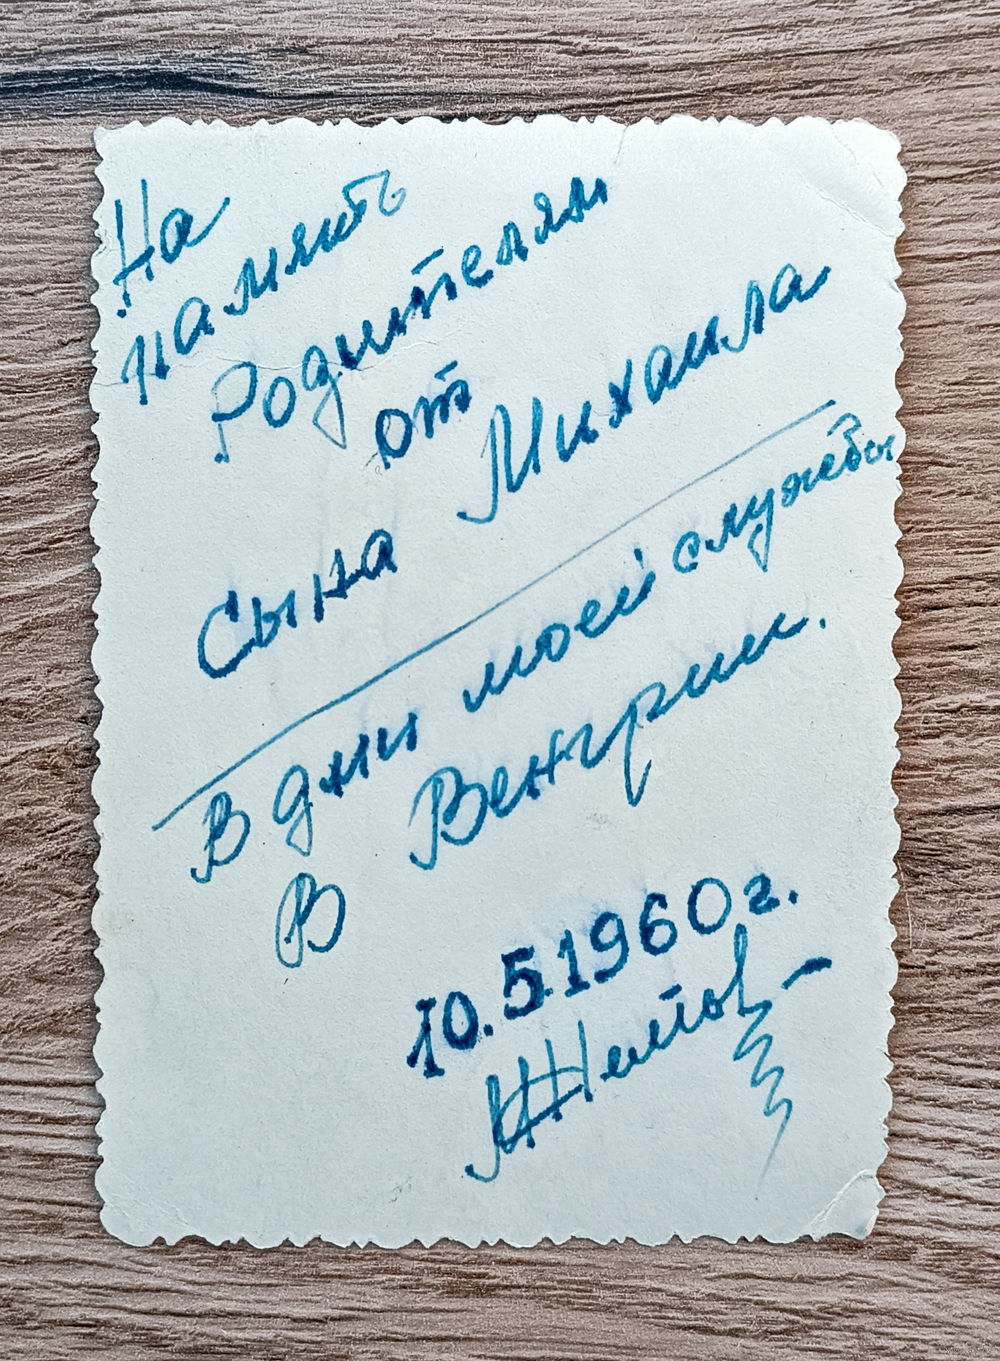 На
память
Родителям
от
Сына Михаила
В дни моей службы
В Венгрии.
10.5.1960 г.